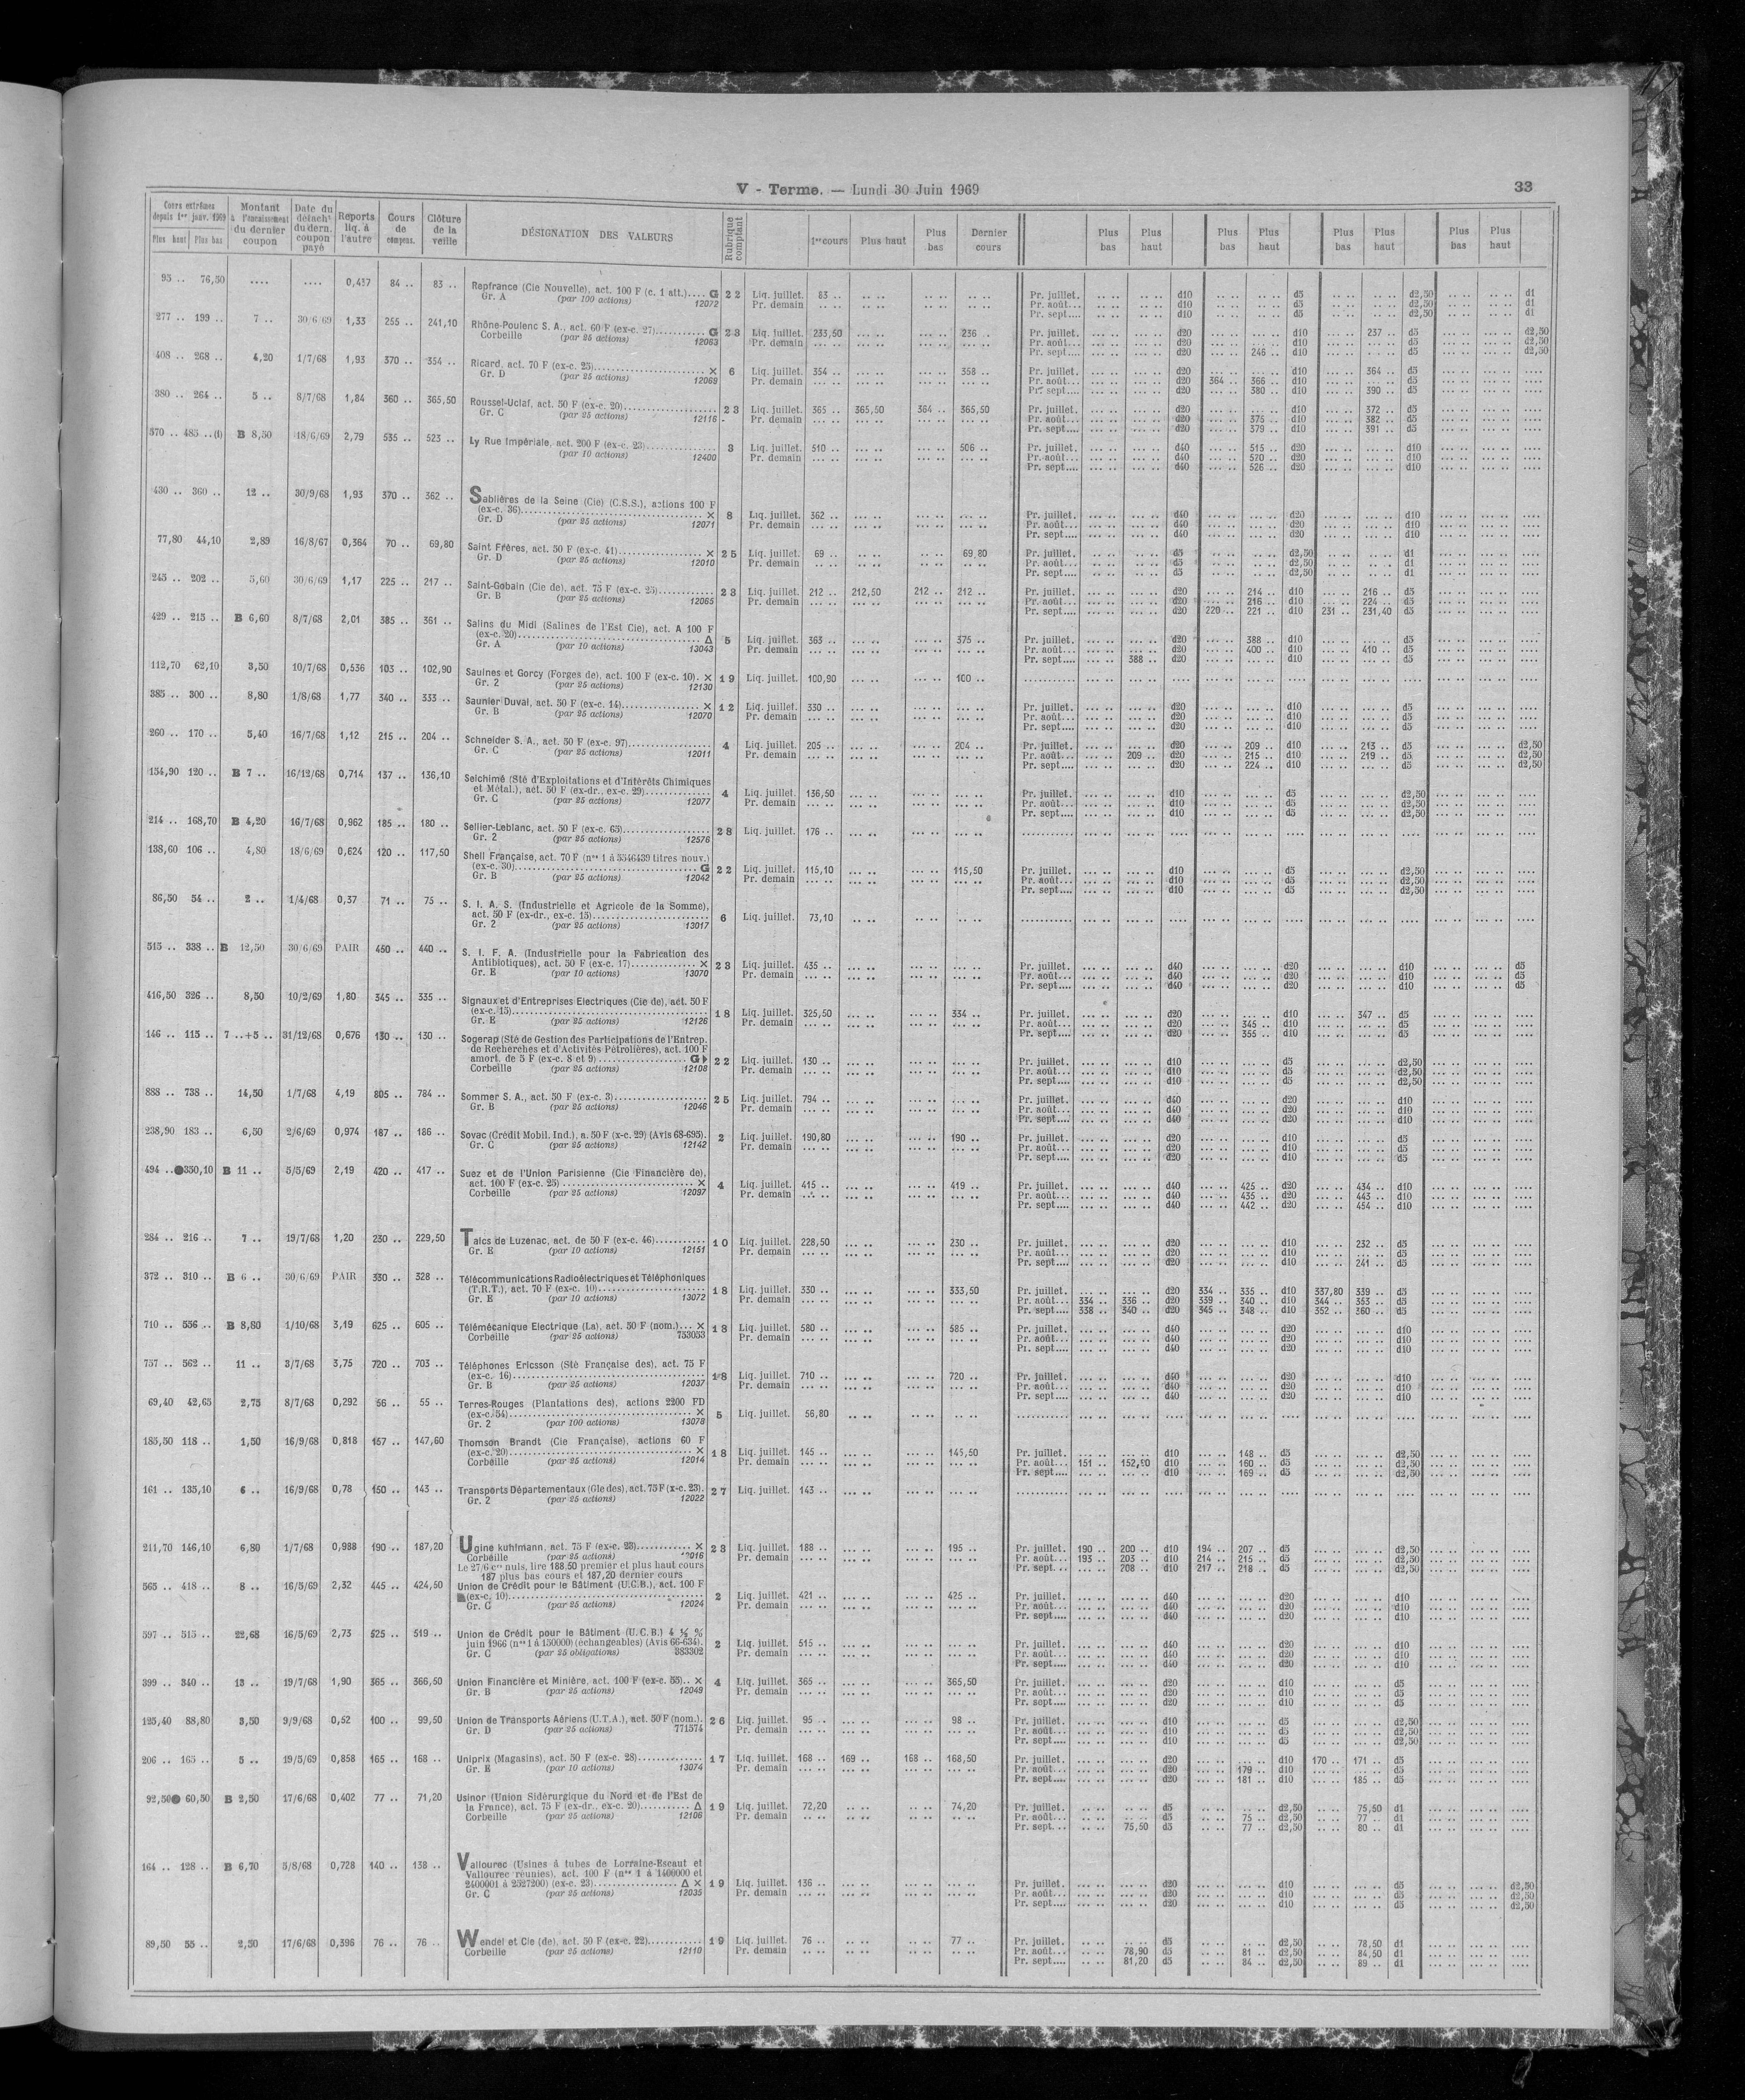 V - Terme. — Lundi 30 Juin 1969
33
Cours extrêmes depuis 1er janv. 1969 Plus haut Plus bas
Montant à l'encaissement du dernier coupon
Date du détacht du dern. coupon payé
Reports liq. à l'autre
Cours de compens.
Clôture de la veille
DÉSIGNATION DES VALEURS
Rubrique comptant
1er cours Plus haut Plus bas Dernier cours
Plus bas Plus haut Plus bas Plus haut Plus bas Plus haut Plus bas Plus haut
95 .. 76,50 .... .... 0,437 84 .. 83 .. Repfrance (Cie Nouvelle), act. 100 F (c. 1 att.).... G 22 Liq. juillet. 83 .. Pr. juillet. d10 d5 d2,50 d1
Gr. A (par 100 actions) 12072 Pr. demain Pr. août... d10 d5 d2,50 d1
Pr. sept.... d10 d5 d2,50 d1
277 .. 199 .. 7 .. 30/6/69 1,33 255 .. 241,10 Rhône-Poulenc S. A., act. 60 F (ex-c. 27).......... G 23 Liq. juillet. 233,50 236 .. Pr. juillet. d20 d10 237 .. d5 d2,50
Corbeille (par 25 actions) 12063 Pr. demain Pr. août... d20 d10 d5 d2,50
Pr. sept.... d20 246 .. d10 d5 d2,50
408 .. 268 .. 4,20 1/7/68 1,93 370 .. 354 .. Ricard, act. 70 F (ex-c. 25).......... × 6 Liq. juillet. 354 .. 358 .. Pr. juillet. d20 d10 364 .. d5
Gr. D (par 25 actions) 12069 Pr. demain Pr. août... d20 364 .. 366 .. d10 d5
Pr. sept.... d20 380 .. d10 390 .. d5
380 .. 264 .. 5 .. 8/7/68 1,84 360 .. 365,50 Roussel-Uclaf, act. 50 F (ex-c. 20).......... 23 Liq. juillet. 365 .. 365,50 364 .. 365,50 Pr. juillet. d20 d10 372 .. d5
Gr. C (par 25 actions) 12116 Pr. demain Pr. août... d20 375 .. d10 382 .. d5
Pr. sept.... d20 379 .. d10 391 .. d5
570 .. 485 ..(t) B 8,50 18/6/69 2,79 535 .. 523 .. Ly Rue Impériale, act. 200 F (ex-c. 23).......... 3 Liq. juillet. 510 .. 506 .. Pr. juillet. d40 515 .. d20 d10
(par 10 actions) 12400 Pr. demain Pr. août... d40 520 .. d20 d10
Pr. sept.... d40 526 .. d20 d10
430 .. 360 .. 12 .. 30/9/68 1,93 370 .. 362 .. Sablières de la Seine (Cie) (C.S.S.), actions 100 F
(ex-c. 36).......... × 8 Liq. juillet. 362 .. Pr. juillet. d40 d20 d10
Gr. D (par 25 actions) 12071 Pr. demain Pr. août... d40 d20 d10
Pr. sept.... d40 d20 d10
77,80 44,10 2,89 16/8/67 0,364 70 .. 69,80 Saint Frères, act. 50 F (ex-c. 41).......... × 25 Liq. juillet. 69 .. 69,80 Pr. juillet. d5 d2,50 d1
Gr. D (par 25 actions) 12010 Pr. demain Pr. août... d5 d2,50 d1
Pr. sept.... d5 d2,50 d1
245 .. 202 .. 5,60 30/6/69 1,17 225 .. 217 .. Saint-Gobain (Cie de), act. 75 F (ex-c. 25).......... 23 Liq. juillet. 212 .. 212,50 212 .. 212 .. Pr. juillet. d20 214 .. d10 216 .. d5
Gr. B (par 25 actions) 12065 Pr. demain Pr. août... d20 216 .. d10 224 .. d5
Pr. sept.... d20 220 .. 221 .. d10 231 .. 231,40 d5
429 .. 215 .. B 6,60 8/7/68 2,01 385 .. 361 .. Salins du Midi (Salines de l'Est Cie), act. A 100 F
(ex-c. 20).......... Δ 5 Liq. juillet. 363 .. 375 .. Pr. juillet. d20 388 .. d10 d5
Gr. A (par 10 actions) 13043 Pr. demain Pr. août... d20 400 .. d10 410 .. d5
Pr. sept.... 388 .. d20 d10 d5
112,70 62,10 3,50 10/7/68 0,536 103 .. 102,90 Saulnes et Gorcy (Forges de), act. 100 F (ex-c. 10). × 19 Liq. juillet. 100,90 100 ..
Gr. 2 (par 25 actions) 12130
385 .. 300 .. 8,80 1/8/68 1,77 340 .. 333 .. Saunier Duval, act. 50 F (ex-c. 14).......... × 12 Liq. juillet. 330 .. Pr. juillet. d20 d10 d5
Gr. B (par 25 actions) 12070 Pr. demain Pr. août... d20 d10 d5
Pr. sept.... d20 d10 d5
260 .. 170 .. 5,40 16/7/68 1,12 215 .. 204 .. Schneider S. A., act. 50 F (ex-c. 97).......... 4 Liq. juillet. 205 .. 204 .. Pr. juillet. d20 209 .. d10 213 .. d5 d2,50
Gr. C (par 25 actions) 12011 Pr. demain Pr. août... 209 .. d20 215 .. d10 219 .. d5 d2,50
Pr. sept.... d20 224 .. d10 d5 d2,50
154,90 120 .. B 7 .. 16/12/68 0,714 137 .. 136,10 Selchimé (Sté d'Exploitations et d'Intérêts Chimiques
et Métal.), act. 50 F (ex-dr., ex-c. 29).......... 4 Liq. juillet. 136,50 Pr. juillet. d10 d5 d2,50
Gr. C (par 25 actions) 12077 Pr. demain Pr. août... d10 d5 d2,50
Pr. sept.... d10 d5 d2,50
214 .. 168,70 B 4,20 16/7/68 0,962 185 .. 180 .. Sellier-Leblanc, act. 50 F (ex-c. 65).......... 28 Liq. juillet. 176 ..
Gr. 2 (par 25 actions) 12576
138,60 106 .. 4,80 18/6/69 0,624 120 .. 117,50 Shell Française, act. 70 F (nos 1 à 5546439 titres nouv.)
(ex-c. 30).......... G 22 Liq. juillet. 115,10 115,50 Pr. juillet. d10 d5 d2,50
Gr. B (par 25 actions) 12042 Pr. demain Pr. août... d10 d5 d2,50
Pr. sept.... d10 d5 d2,50
86,50 54 .. 2 .. 1/4/68 0,37 71 .. 75 .. S. I. A. S. (Industrielle et Agricole de la Somme),
act. 50 F (ex-dr., ex-c. 15).......... 6 Liq. juillet. 73,10
Gr. 2 (par 25 actions) 13017
515 .. 338 .. B 12,50 30/6/69 PAIR 450 .. 440 .. S. I. F. A. (Industrielle pour la Fabrication des
Antibiotiques), act. 50 F (ex-c. 17).......... × 23 Liq. juillet. 435 .. Pr. juillet. d40 d20 d10 d5
Gr. E (par 10 actions) 13070 Pr. demain Pr. août... d40 d20 d10 d5
Pr. sept.... d40 d20 d10 d5
416,50 326 .. 8,50 10/2/69 1,80 345 .. 335 .. Signaux et d'Entreprises Electriques (Cie de), act. 50 F
(ex-c. 15).......... 18 Liq. juillet. 325,50 334 .. Pr. juillet. d20 d10 347 .. d5
Gr. E (par 25 actions) 12126 Pr. demain Pr. août... d20 345 .. d10 d5
Pr. sept.... d20 355 .. d10 d5
146 .. 115 .. 7 ..+5 .. 31/12/68 0,676 130 .. 130 .. Sogerap (Sté de Gestion des Participations de l'Entrep.
de Recherches et d'Activités Pétrolières), act. 100 F
amort. de 5 F (ex-c. 8 et 9).......... G 22 Liq. juillet. 130 .. Pr. juillet. d10 d5 d2,50
Corbeille (par 25 actions) 12108 Pr. demain Pr. août... d10 d5 d2,50
Pr. sept.... d10 d5 d2,50
888 .. 738 .. 14,50 1/7/68 4,19 805 .. 784 .. Sommer S. A., act. 50 F (ex-c. 3).......... 25 Liq. juillet. 794 .. Pr. juillet. d40 d20 d10
Gr. B (par 25 actions) 12046 Pr. demain Pr. août... d40 d20 d10
Pr. sept.... d40 d20 d10
238,90 183 .. 6,50 2/6/69 0,974 187 .. 186 .. Sovac (Crédit Mobil. Ind.), a. 50 F (x-c. 29) (Avis 68-695). 2 Liq. juillet. 190,80 190 .. Pr. juillet. d20 d10 d5
Gr. C (par 25 actions) 12142 Pr. demain Pr. août... d20 d10 d5
Pr. sept.... d20 d10 d5
494 .. 350,10 B 11 .. 5/5/69 2,19 420 .. 417 .. Suez et de l'Union Parisienne (Cie Financière de),
act. 100 F (ex-c. 25).......... × 4 Liq. juillet. 415 .. 419 .. Pr. juillet. d40 425 .. d20 434 .. d10
Corbeille (par 25 actions) 12097 Pr. demain Pr. août... d40 435 .. d20 443 .. d10
Pr. sept.... d40 442 .. d20 454 .. d10
284 .. 216 .. 7 .. 19/7/68 1,20 230 .. 229,50 Talcs de Luzenac, act. de 50 F (ex-c. 46).......... 10 Liq. juillet. 228,50 230 .. Pr. juillet. d20 d10 232 .. d5
Gr. E (par 10 actions) 12151 Pr. demain Pr. août... d20 d10 d5
Pr. sept.... d20 d10 241 .. d5
372 .. 310 .. B 6 .. 30/6/69 PAIR 330 .. 328 .. Télécommunications Radioélectriques et Téléphoniques
(T.R.T.), act. 70 F (ex-c. 10).......... 18 Liq. juillet. 330 .. 333,50 Pr. juillet. d20 334 .. 335 .. d10 337,80 339 .. d5
Gr. E (par 10 actions) 13072 Pr. demain Pr. août... 334 .. 336 .. d20 339 .. 340 .. d10 344 .. 353 .. d5
Pr. sept.... 338 .. 340 .. d20 345 .. 348 .. d10 352 .. 360 .. d5
710 .. 556 .. B 8,80 1/10/68 3,19 625 .. 605 .. Télémécanique Electrique (La), act. 50 F (nom.)... × 18 Liq. juillet. 580 .. 585 .. Pr. juillet. d40 d20 d10
Corbeille (par 25 actions) 753053 Pr. demain Pr. août... d40 d20 d10
Pr. sept.... d40 d20 d10
757 .. 562 .. 11 .. 3/7/68 3,75 720 .. 703 .. Téléphones Ericsson (Sté Française des), act. 75 F
(ex-c. 16).......... 18 Liq. juillet. 710 .. 720 .. Pr. juillet. d40 d20 d10
Gr. B (par 25 actions) 12037 Pr. demain Pr. août... d40 d20 d10
Pr. sept.... d40 d20 d10
69,40 42,65 2,75 8/7/68 0,292 56 .. 55 .. Terres-Rouges (Plantations des), actions 2200 FD
(ex-c. 54).......... × 5 Liq. juillet. 56,80
Gr. 2 (par 100 actions) 13078
185,50 118 .. 1,50 16/9/68 0,818 157 .. 147,60 Thomson Brandt (Cie Française), actions 60 F
(ex-c. 20).......... × 18 Liq. juillet. 145 .. 145,50 Pr. juillet. d10 148 .. d5 d2,50
Corbeille (par 25 actions) 12014 Pr. demain Pr. août... 151 .. 152,50 d10 160 .. d5 d2,50
Pr. sept.... d10 169 .. d5 d2,50
161 .. 135,10 6 .. 16/9/68 0,78 150 .. 143 .. Transports Départementaux (Gle des), act. 75 F (x-c. 23). 27 Liq. juillet. 143 ..
Gr. 2 (par 25 actions) 12022
211,70 146,10 6,80 1/7/68 0,988 190 .. 187,20 Ugine kuhlmann, act. 75 F (ex-c. 23).......... × 23 Liq. juillet. 188 .. 195 .. Pr. juillet. 190 .. 200 .. d10 194 .. 207 .. d5 d2,50
Corbeille (par 25 actions) 12016 Pr. demain Pr. août... 193 .. 203 .. d10 214 .. 215 .. d5 d2,50
Le 27/6 crs nuls, lire 188.50 premier et plus haut cours Pr. sept.... 208 .. d10 217 .. 218 .. d5 d2,50
187 plus bas cours et 187,20 dernier cours
565 .. 418 .. 8 .. 16/5/69 2,32 445 .. 424,50 Union de Crédit pour le Bâtiment (U.C.B.), act. 100 F
(ex-c. 10).......... 2 Liq. juillet. 421 .. 425 .. Pr. juillet. d40 d20 d10
Gr. C (par 25 actions) 12024 Pr. demain Pr. août... d40 d20 d10
Pr. sept.... d40 d20 d10
597 .. 515 .. 22,68 16/5/69 2,73 525 .. 519 .. Union de Crédit pour le Bâtiment (U.C.B.) 4 ½ %
juin 1966 (nos 1 à 150000) (échangeables) (Avis 66-634). 2 Liq. juillet. 515 .. Pr. juillet. d40 d20 d10
Gr. C (par 25 obligations) 383302 Pr. demain Pr. août... d40 d20 d10
Pr. sept.... d40 d20 d10
399 .. 340 .. 13 .. 19/7/68 1,90 365 .. 366,50 Union Financière et Minière, act. 100 F (ex-c. 55).. × 4 Liq. juillet. 365 .. 365,50 Pr. juillet. d20 d10 d5
Gr. B (par 25 actions) 12049 Pr. demain Pr. août... d20 d10 d5
Pr. sept.... d20 d10 d5
125,40 88,80 3,50 9/9/68 0,52 100 .. 99,50 Union de Transports Aériens (U.T.A.), act. 50 F (nom.). 26 Liq. juillet. 95 .. 98 .. Pr. juillet. d10 d5 d2,50
Gr. D (par 25 actions) 771574 Pr. demain Pr. août... d10 d5 d2,50
Pr. sept.... d10 d5 d2,50
206 .. 165 .. 5 .. 19/5/69 0,858 165 .. 168 .. Uniprix (Magasins), act. 50 F (ex-c. 28).......... 17 Liq. juillet. 168 .. 169 .. 168 .. 168,50 Pr. juillet. d20 d10 170 .. 171 .. d5
Gr. E (par 10 actions) 13074 Pr. demain Pr. août... d20 179 .. d10 d5
Pr. sept.... d20 181 .. d10 185 .. d5
92,50 60,50 B 2,50 17/6/68 0,402 77 .. 71,20 Usinor (Union Sidérurgique du Nord et de l'Est de
la France), act. 75 F (ex-dr., ex-c. 20).......... Δ 19 Liq. juillet. 72,20 74,20 Pr. juillet. d5 d2,50 75,50 d1
Corbeille (par 25 actions) 12106 Pr. demain Pr. août... d5 75 .. d2,50 77 .. d1
Pr. sept... 75,50 d5 77 .. d2,50 80 .. d1
164 .. 128 .. B 6,70 5/8/68 0,728 140 .. 138 .. Vallourec (Usines à tubes de Lorraine-Escaut et
Vallourec réunies), act. 100 F (nos 1 à 1400000 et
2400001 à 2527200) (ex-c. 23).......... Δ × 19 Liq. juillet. 136 .. Pr. juillet. d20 d10 d5 d2,50
Gr. C (par 25 actions) 12035 Pr. demain Pr. août... d20 d10 d5 d2,50
Pr. sept.... d20 d10 d5 d2,50
89,50 55 .. 2,50 17/6/68 0,396 76 .. 76 .. Wendel et Cie (de), act. 50 F (ex-c. 22).......... 19 Liq. juillet. 76 .. 77 .. Pr. juillet. d5 d2,50 78,50 d1
Corbeille (par 25 actions) 12110 Pr. demain Pr. août... 78,90 d5 81 .. d2,50 84,50 d1
Pr. sept.... 81,20 d5 84 .. d2,50 89 .. d1